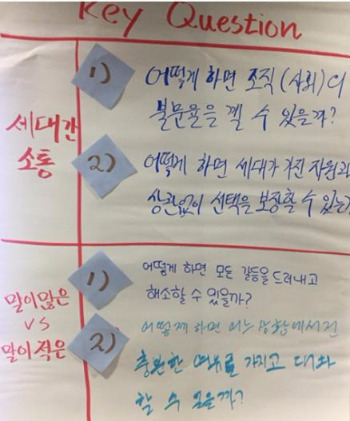 Key Question
세대간
소통
1)
어떻게 하면 조직(사회)의
불문율을 깰 수 있을까?
2)
어떻게 하면 세대가 가진 자원과
상관없이 선택을 보장할 수 있는가
말이많은
VS
말이 적은
1)
어떻게 하면 모든 갈등을 드러내고
해소할 수 있을까?
2)
어떻게 하면 어느 상황에서건
충분한 여유를 가지고 대화
할 수 있을까?